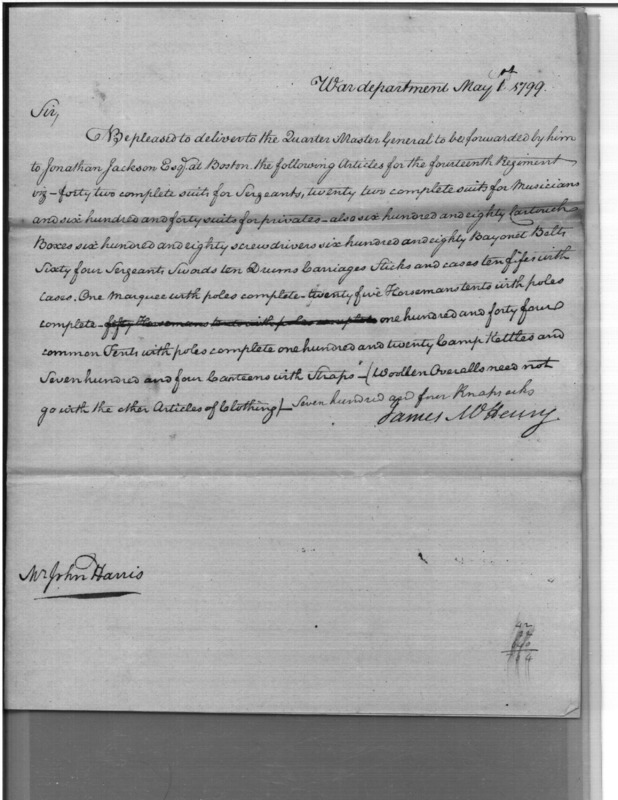 War department May 1st 1799.
Sir,
Be pleased to deliver to the Quarter Master General to be forwarded by him
to Jonathan Jackson Esqr. at Boston the following Articles for the fourteenth Regiment
viz – forty two complete suits for Sergeants, twenty two complete suits for Musicians
and six hundred and forty suits for privates – also six hundred and eighty Cartouch
Boxes six hundred and eighty screwdrivers six hundred and eighty Bayonet Belts
Sixty four Sergeants Swords ten Drums Carriages Sticks and cases ten fifes with
cases. One Marquee with poles complete – twenty five Horsemans tents with poles
complete – fifty Horsemans tents with poles complete one hundred and forty four
common Tents with poles complete one hundred and twenty Camp Kettles and
Seven hundred and four Canteens with Straps – (Woollen Overalls need not
go with the other Articles of Clothing) – Seven hundred and four Knapsacks
James McHenry
Mr. John Harris
42